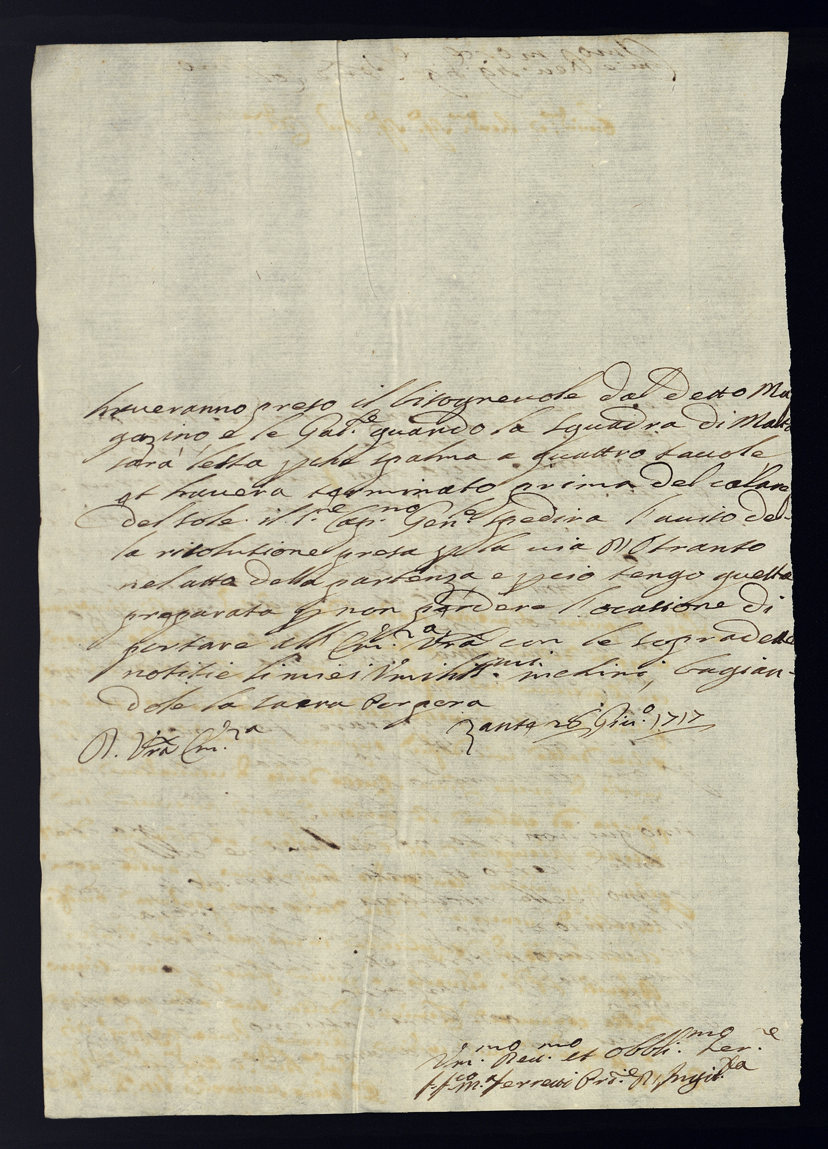 haveranno preso il bisognevole dal detto Ma
gazino, e le Gal.e quando la squadra di Malta
sara lesta p che spalma a quattro tavole
et havera terminato prima del calare
del sole il s.re Cap.no Gen.e spedira l'aviso del
la risolutione presa p la via d'Otranto
nel atto della partenza e p cio tengo questa
preparata p non perdere l'ocasione di
portare all' Em.za Vra con le sopradette
notitie li miei Umiliss.mi inchini, bagian-
dole la sacra Porpora
D. Vra Em.za
Zante 26 Giu.o 1717
Um.mo Dev.mo et Obbli.mo Ser.e
f. fco M.a Ferretti